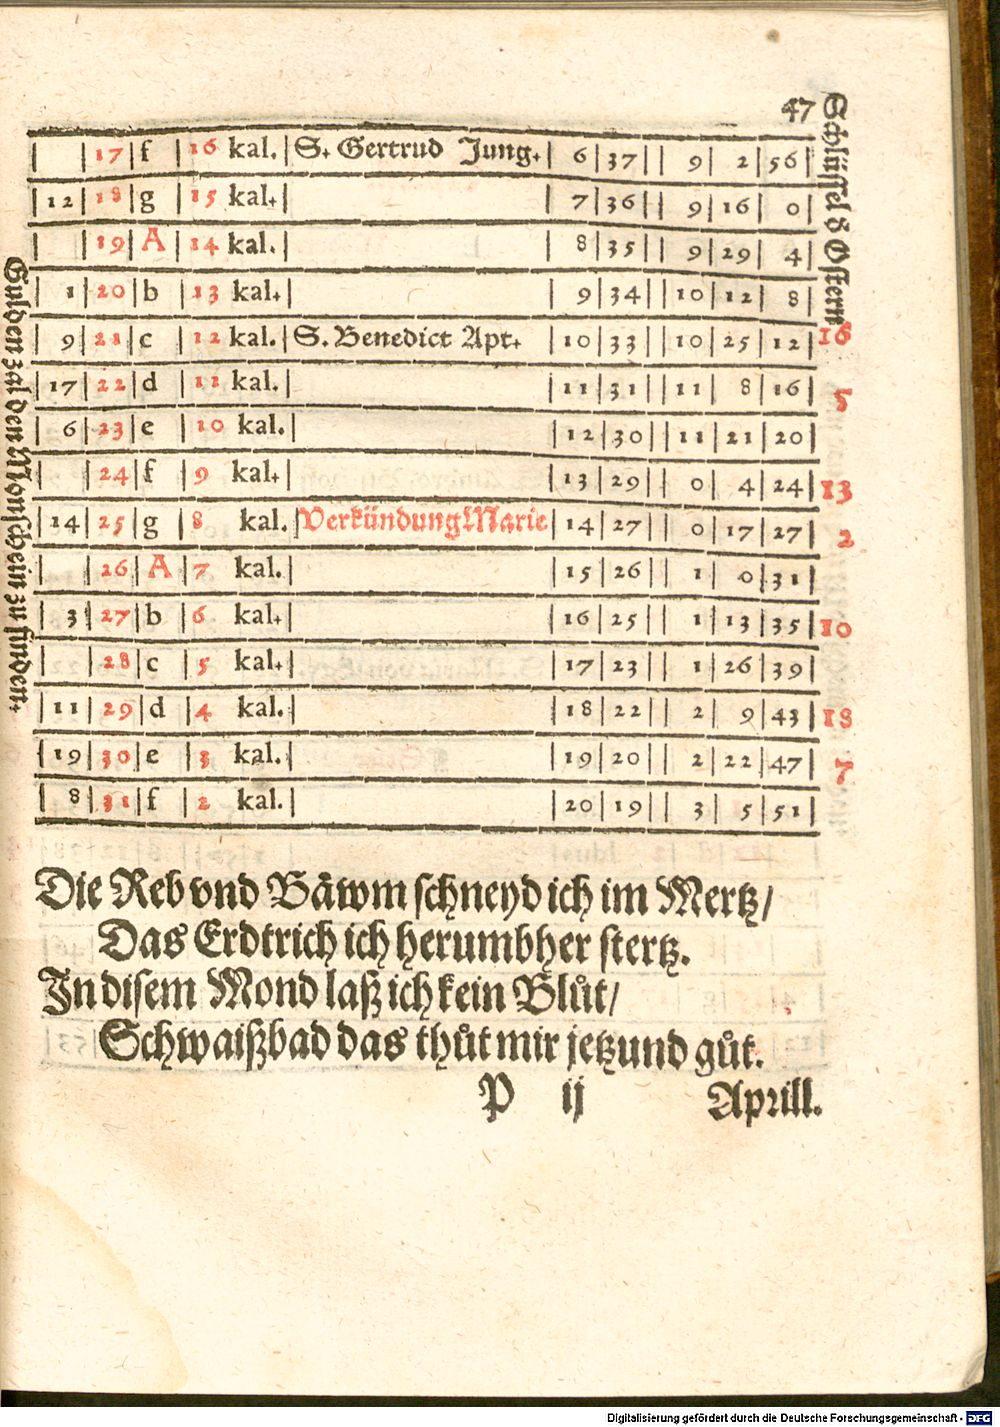 47
Schlüssel d Ostern
Gulden zal den Monschein zu finden.
17 f 16 kal. S. Gertrud Jung. 6 37 9 2 56
12 18 g 15 kal. 7 36 9 16 0
19 A 14 kal. 8 35 9 29 4
1 20 b 13 kal. 9 34 10 12 8
9 21 c 12 kal. S. Benedict Apt. 10 33 10 25 12 16
17 22 d 11 kal. 11 31 11 8 16 5
6 23 e 10 kal. 12 30 11 21 20
24 f 9 kal. 13 29 0 4 24 13
14 25 g 8 kal. Verkündung Marie 14 27 0 17 27 2
26 A 7 kal. 15 26 1 0 31
3 27 b 6 kal. 16 25 1 13 35 10
28 c 5 kal. 17 23 1 26 39
11 29 d 4 kal. 18 22 2 9 43 18
19 30 e 3 kal. 19 20 2 22 47 7
8 31 f 2 kal. 20 19 3 5 51
Die Reb vnd Båwm schneyd ich im Mertz/
Das Erdtrich ich herumbher stertz.
In disem Mond laß ich kein Blůt/
Schwaißbad das thůt mir jetzund gůt.
P ij Aprill.
Digitalisierung gefördert durch die Deutsche Forschungsgemeinschaft - DFG